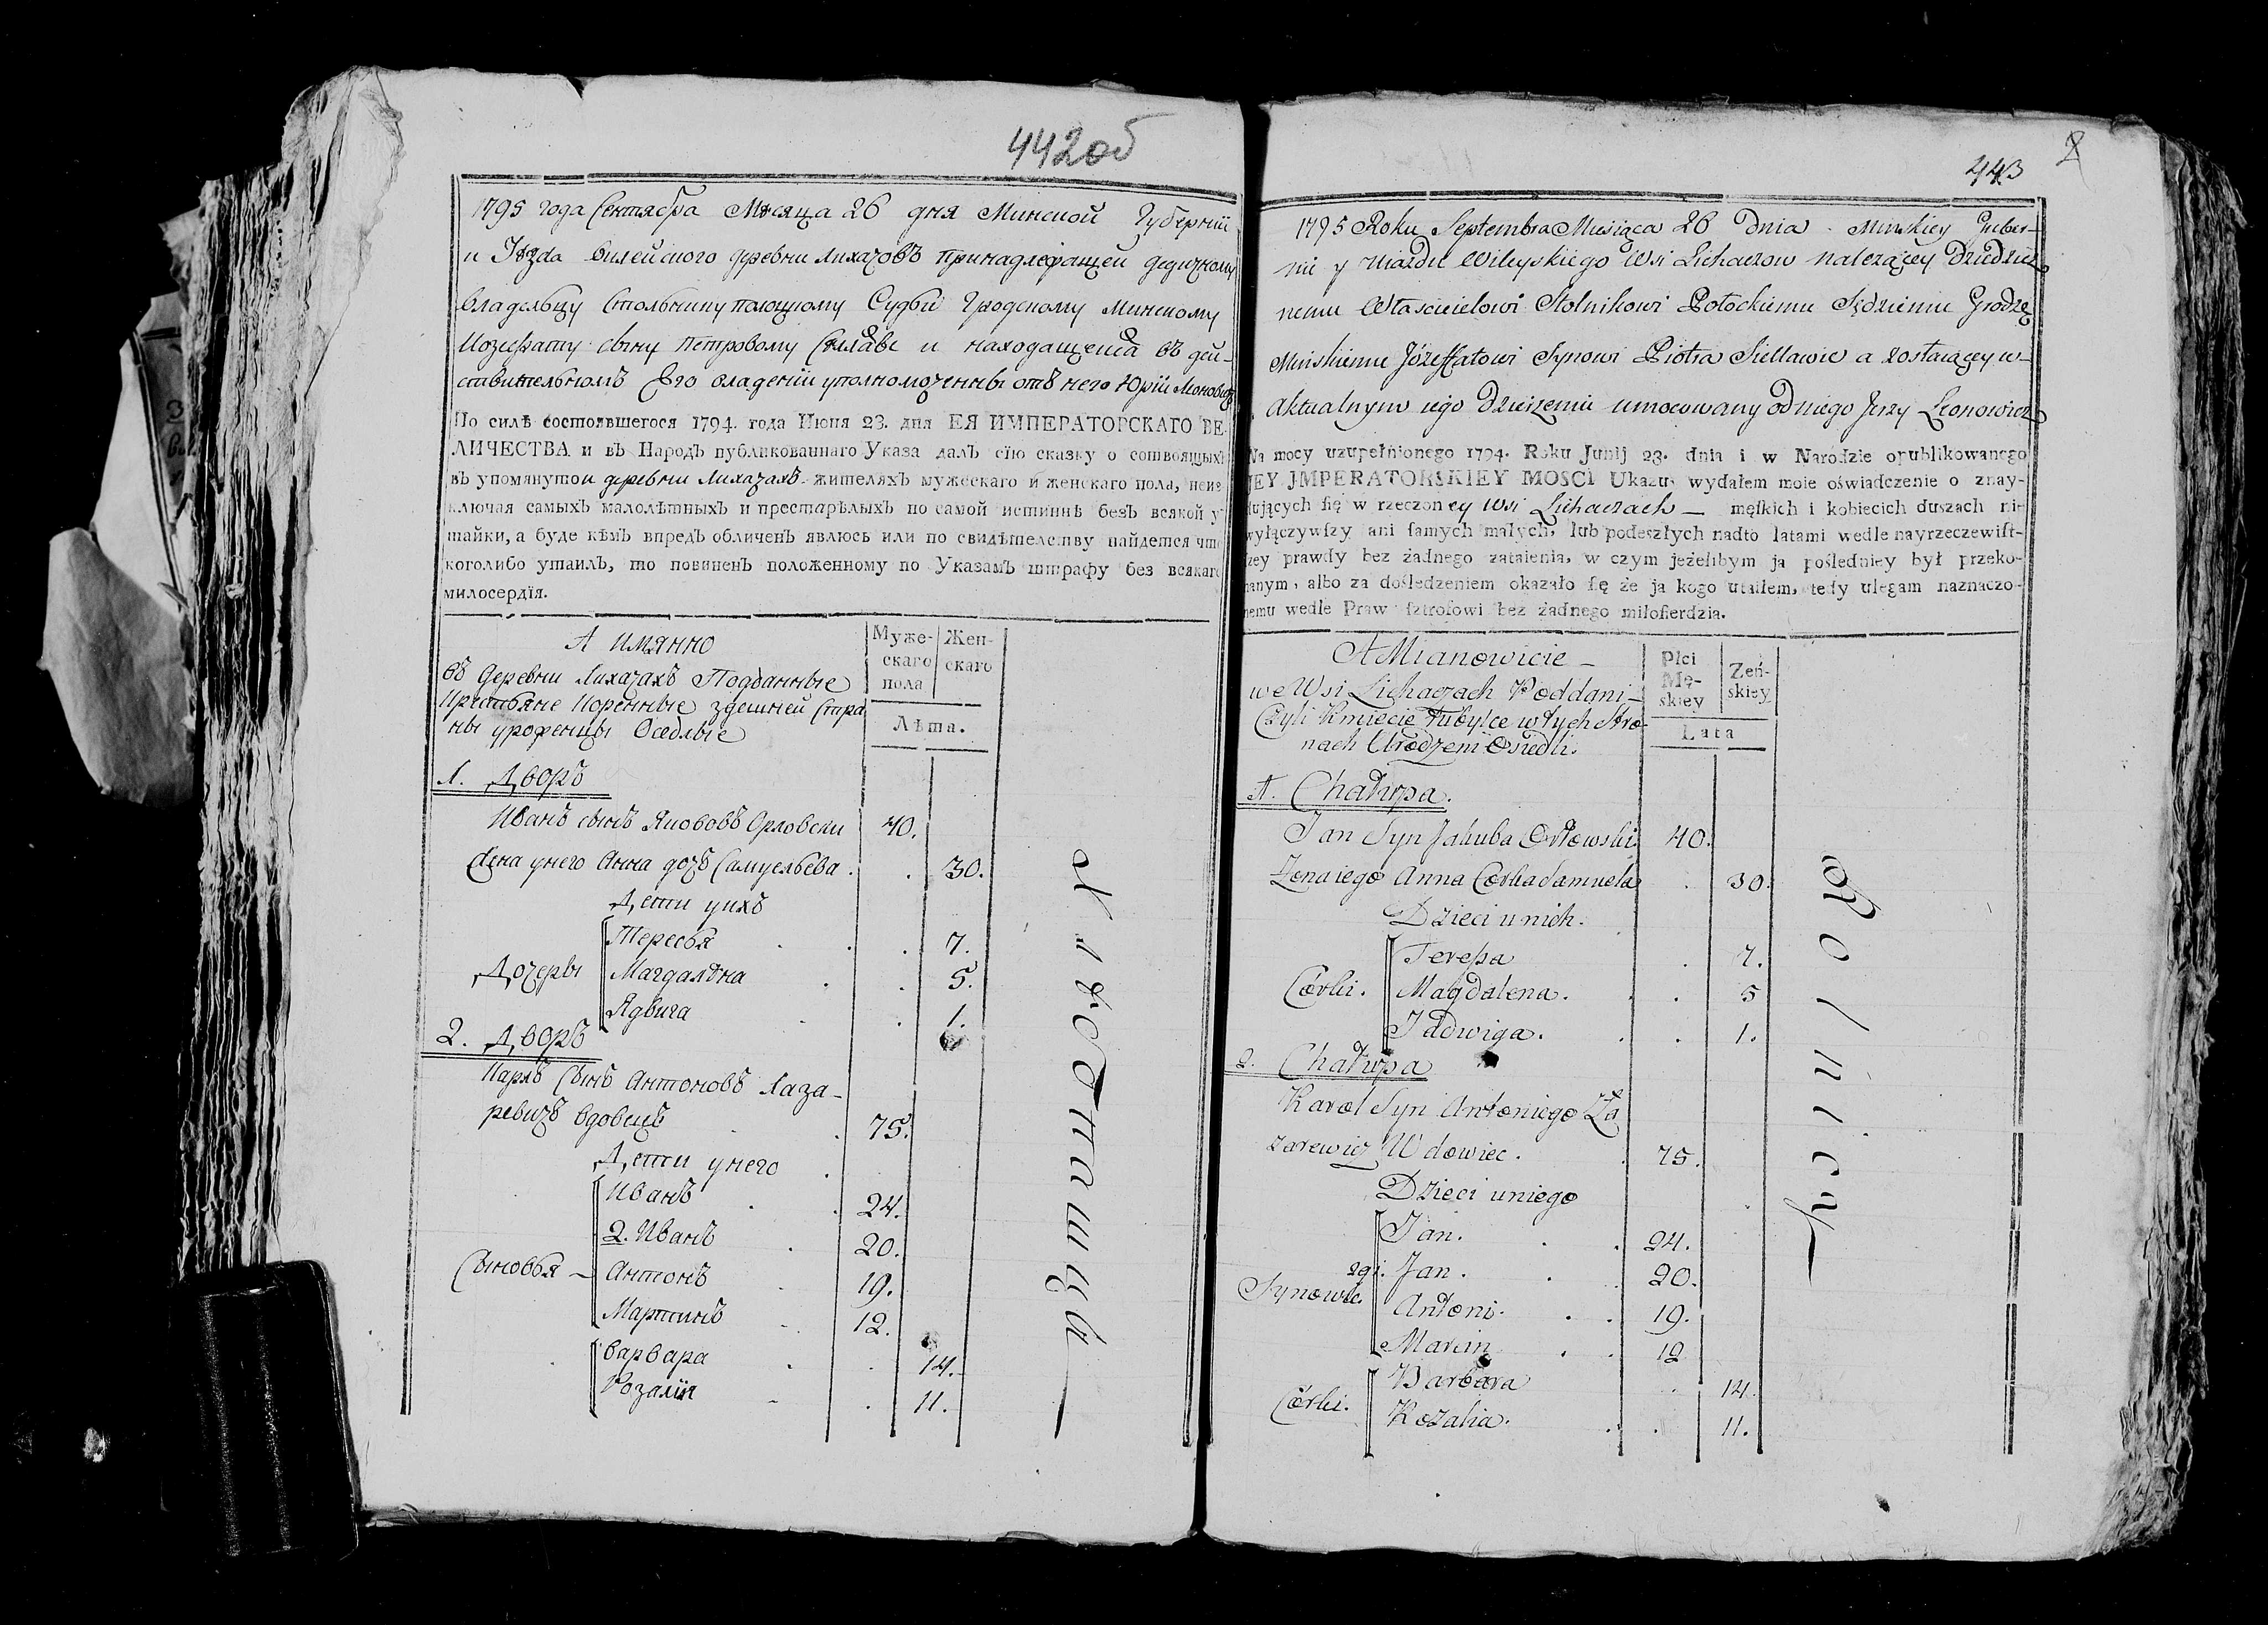 442об
1795 года Сентября Мѣсяца 26 дня Минской Губерніи
и Уѣзда Вилейского деревни Лихачовъ принадлежащей дедичному
владельцу Стольнику полоцкому Судьи Гродскому Минскому
Иозефату сыну Петровому Селявѣ и находящейся въ дей-
ствительномъ Его владеніи уполномоченны отъ него Юріи
По силѣ состоявшегося 1794. года Июня 23. дня ЕЯ ИМПЕРАТОРСКАГО ВЕ-
ЛИЧЕСТВА и въ Народъ публикованнаго Указа далъ сїю сказку о состоящыхъ
въ упомянутои деревни Лихачахъ жителяхъ мужескаго и женскаго пола, неис
ключая самыхъ малолѣтныхъ и престарѣлыхъ по самой истиннѣ безъ всякой у
тайки, а буде кѣмъ впредъ обличенъ явлюсь или по свидѣтелству найдется что
коголибо утаилъ, то повиненъ положенному по Указамъ штрафу без всякаго
милосердїя.
А имянно
въ деревни Лихачахъ Подданные
Крестьяне Коренные здешней стра
ны уроженцы Оседлые
Муже-
скаго
пола
Жен-
скаго
Лѣта.
1. Дворъ
Иванъ сынъ Якововъ Орловски 40.
Жена унего Анна дочь Самуельева . . 30.
Дети унихъ
Дочеры
Тересья . . . 7.
Магдалѣна . . 5.
Ядвига . . 1.
2. Дворъ
Карлъ Сынъ Антоновъ Лаза-
ревичъ вдовецъ . 75.
Дети унего
Сыновья
Иванъ . . 24.
2. Иванъ . 20.
Антонъ . 19.
Мартинъ . 12.
Варвара . . 14.
Розалія . . 11.
443
2
1795 Roku Septembra Miesiąca 26 Dnia . Minskiey Guber-
nii y Uiazdu Wileyskiego Wsi Lichaczow nalezącey Dziedzicz
nemu Włascicielowi Stolnikowi Połockiemu Sędziemu Grodzę
Minskiemu Józeffatowi Synowi Piotra Siellawie a zostaiącey w-
Aktualnym iego Dzierzeniu umocowany od niego Jerzy Leonowicz
Na mocy uzupełnionego 1794. Roku Junij 23. dnia i w Narodzie opublikowanego
JEY JMPERATORSKIEY MOSCI Ukazu, wydałem moie oświadczenie o znay-
dujących ſię w rzeczoney Wsi Lichaczach — męſkich i kobiecich duszach nie
wyłączywſzy ani ſamych małych, lub podeszłych nadto latami wedle nayrzeczewiſt-
zey prawdy bez żadnego zataienia, w czym jeżelibym ja poślednìey był przeko-
nanym, albo za dośledzeniem okazało ſię że ja kogo utaiłem, tedy ulegam naznaczo-
nemu wedle Praw ſztrofowi bez żadnego miłoſierdzia.
A Mianowicie -
we Wsi Lichaczach Poddani-
Czyli Kmiecie tubylce w tych Stro-
nach Urodzeni Osiedli.
Płci
Mę-
skiey
Żeń-
skiey
Lata
1. Chałupa.
Jan Syn Jakuba Orłowski. 40.
Zona iego Anna Corka Samuela . 30.
Dzieci u nich.
Córki.
Teressa . 7.
Magdalena. . . 5
Jadwiga. . . 1.
2. Chałupa
Karol Syn Antoniego Ła
zarewicz Wdowiec. . 75.
Dzieci u niego
Synowie
Jan. . . 24.
2gi. Jan. . . 20.
Antoni. . . 19.
Marcin . . 12
Córki.
Barbara . 14.
Rozalia. . . 11.